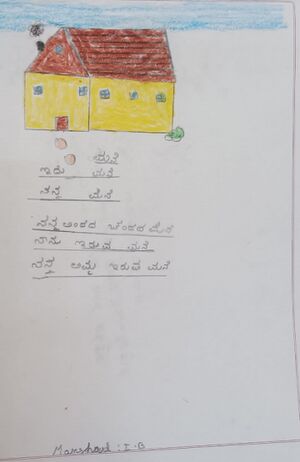 ಮನೆ
ಇದು ಮನೆ
ನನ್ನ ಮನೆ
ನನ್ನ ಅಂದದ ಚಂದದ ಮನೆ
ನಾನು ಇರುವ ಮನೆ
ನನ್ನ ಅಮ್ಮ ಇರುವ ಮನೆ
: I - B